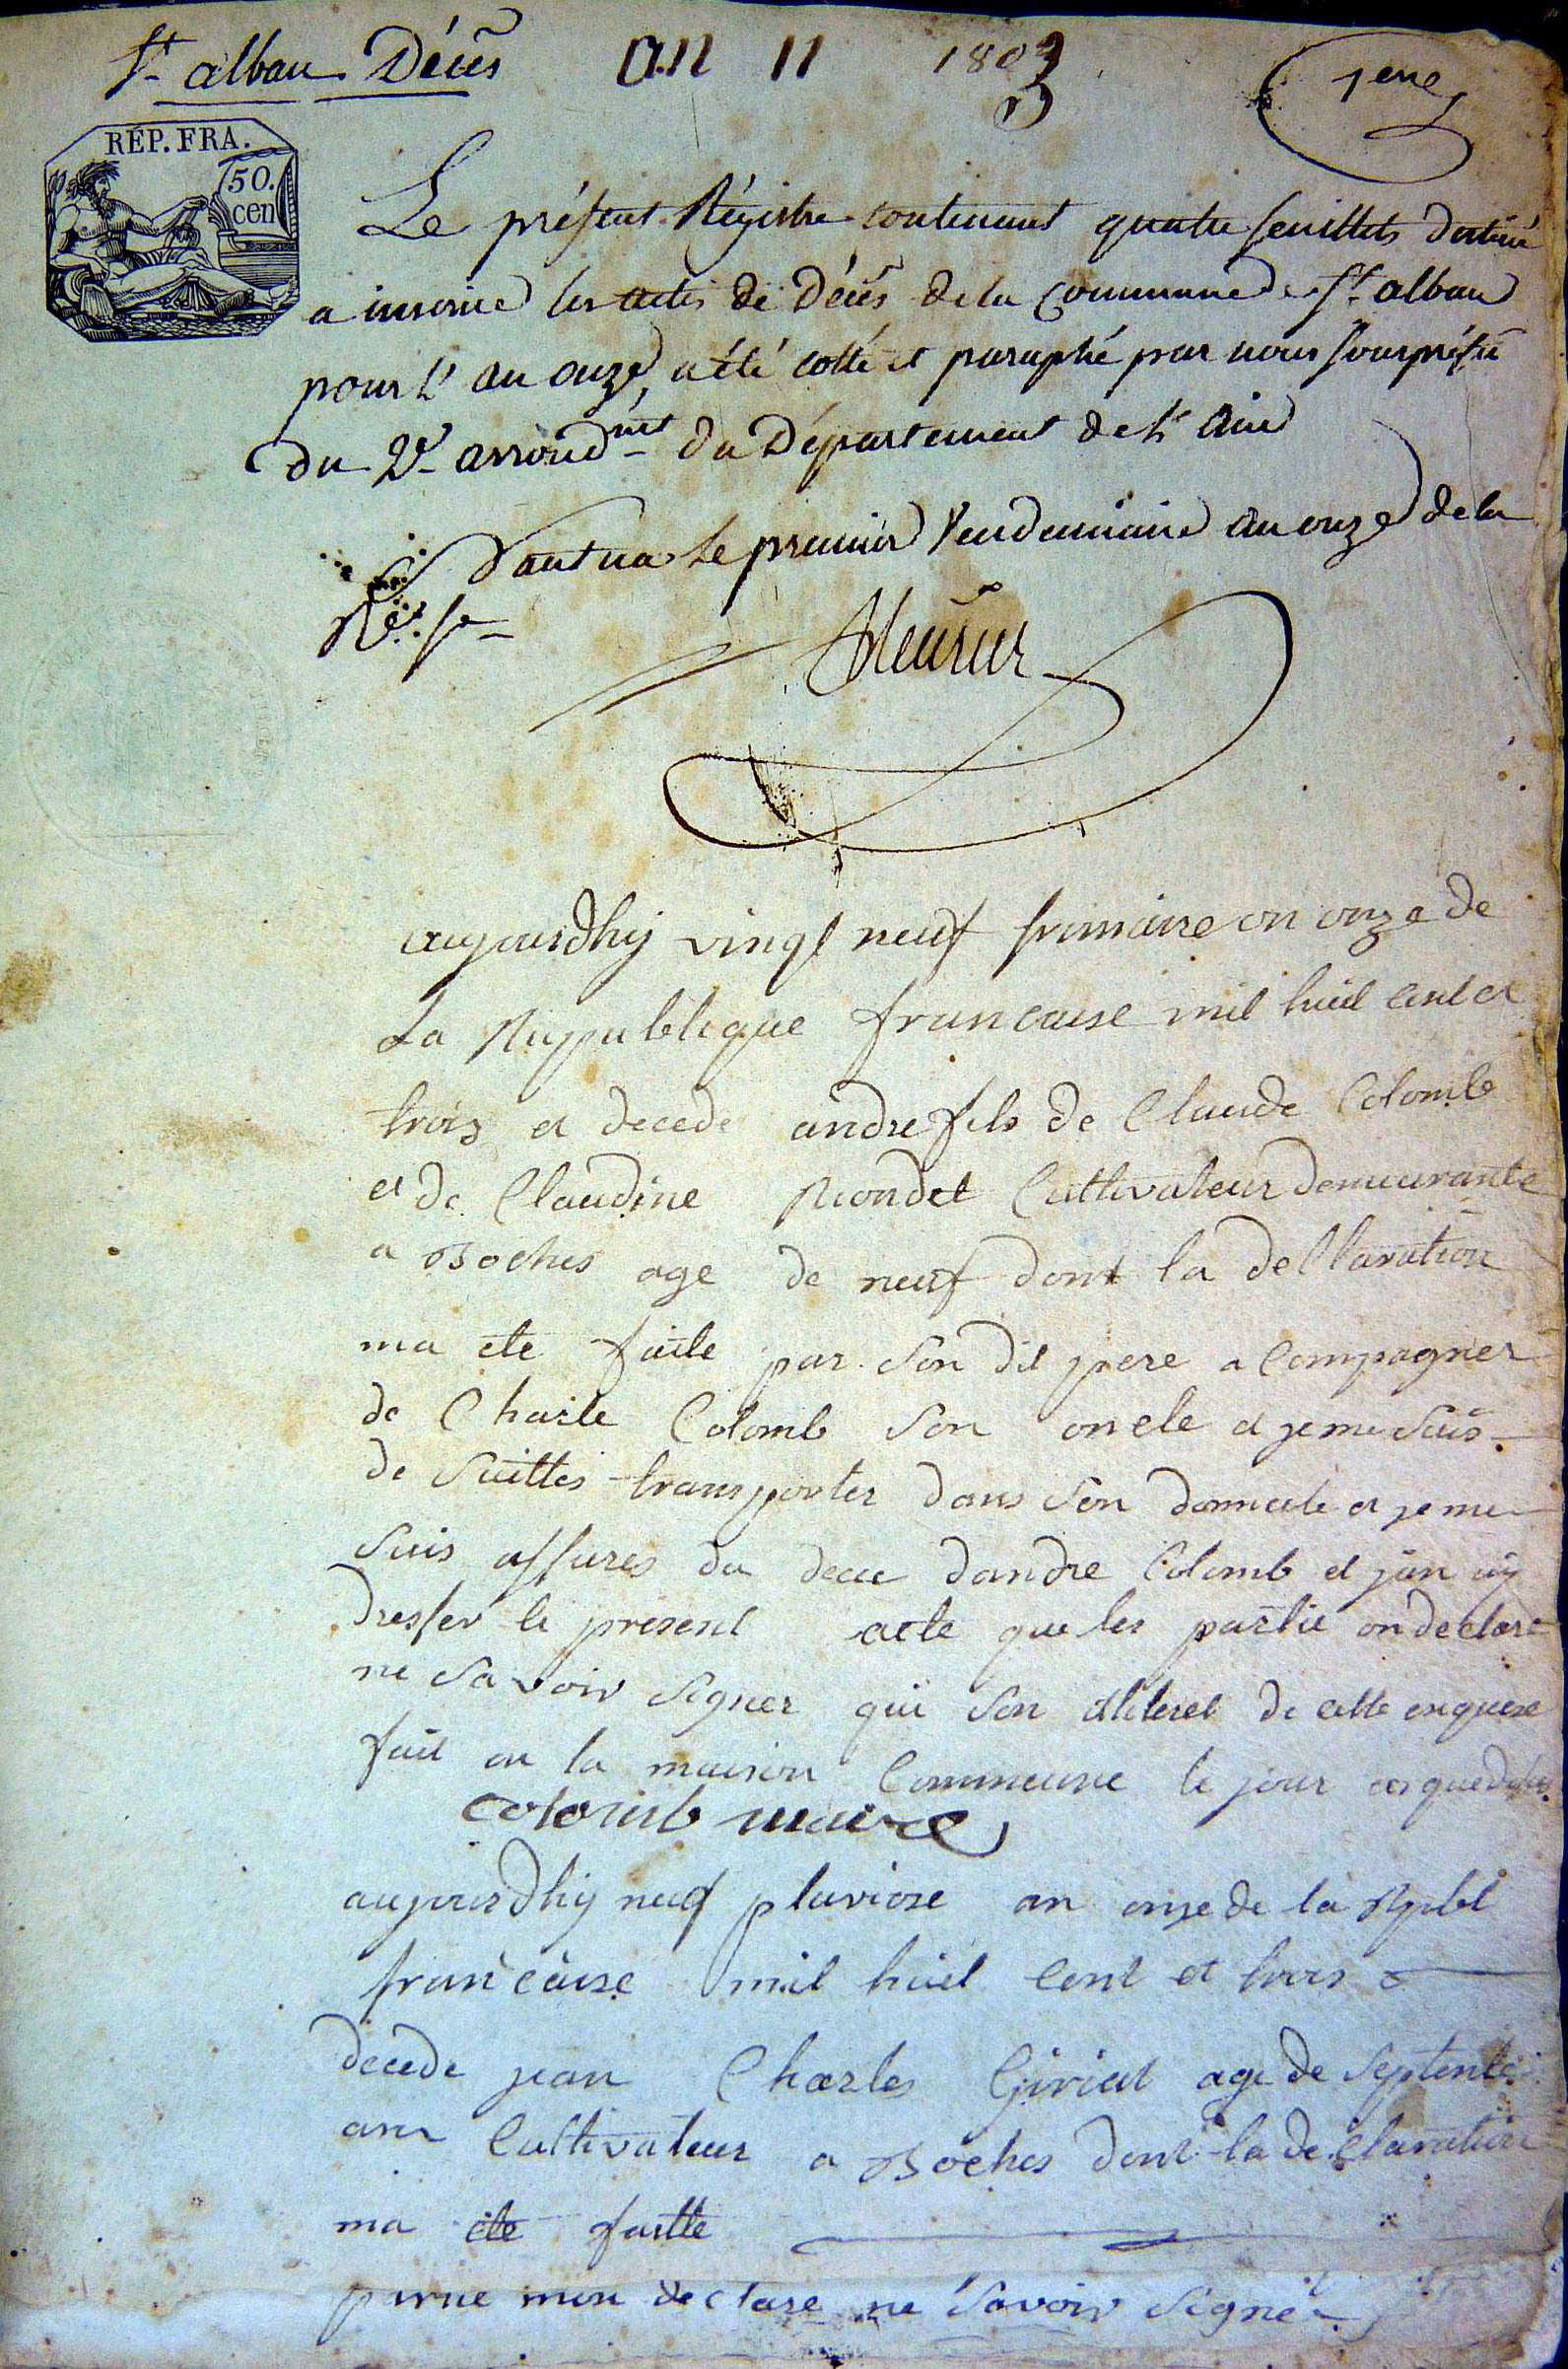 St alban Décès an 11 1803 1ere
RÉP. FRA.
50.
cen
Le présent Régistre contenant quatre feuillets destiné
a inscrire les actes de Décès de la Commune de St alban
pour l'an onze, a été cotté et paraphé par nous Souspréfet
du 2e arrondmt du Département de l'Ain
Nantua le premier Vendemiaire an onze de la
aujourdhÿ vingt neuf frimaire an onze de
La Reppublique francaise mil huit cent et
trois et decede andre fils de Claude Colomb
et de Claudine Riondet Cultivateur demeurante
a Boches age de neuf dont la decllaration
ma ete faite par son dit pere a Compagner
de Charle Colomb son oncle et je me suis
de suittes transporter dans son domicile et je me
suis assures du dece dandre Colomb et jan aÿ
dresser le present acte que les partie on declare
ne savoir signer qui son de cette
fait en la maison Commeune le jour
colomb maire
aujourdhÿ neuf pluviose an onze de la Rpbl
francaise mil huit cent et trois
decede jean Charles Giriat age de septente
ans Cultivateur a Boches dont la declaration
ma ete faitte
declare ne savoir signer